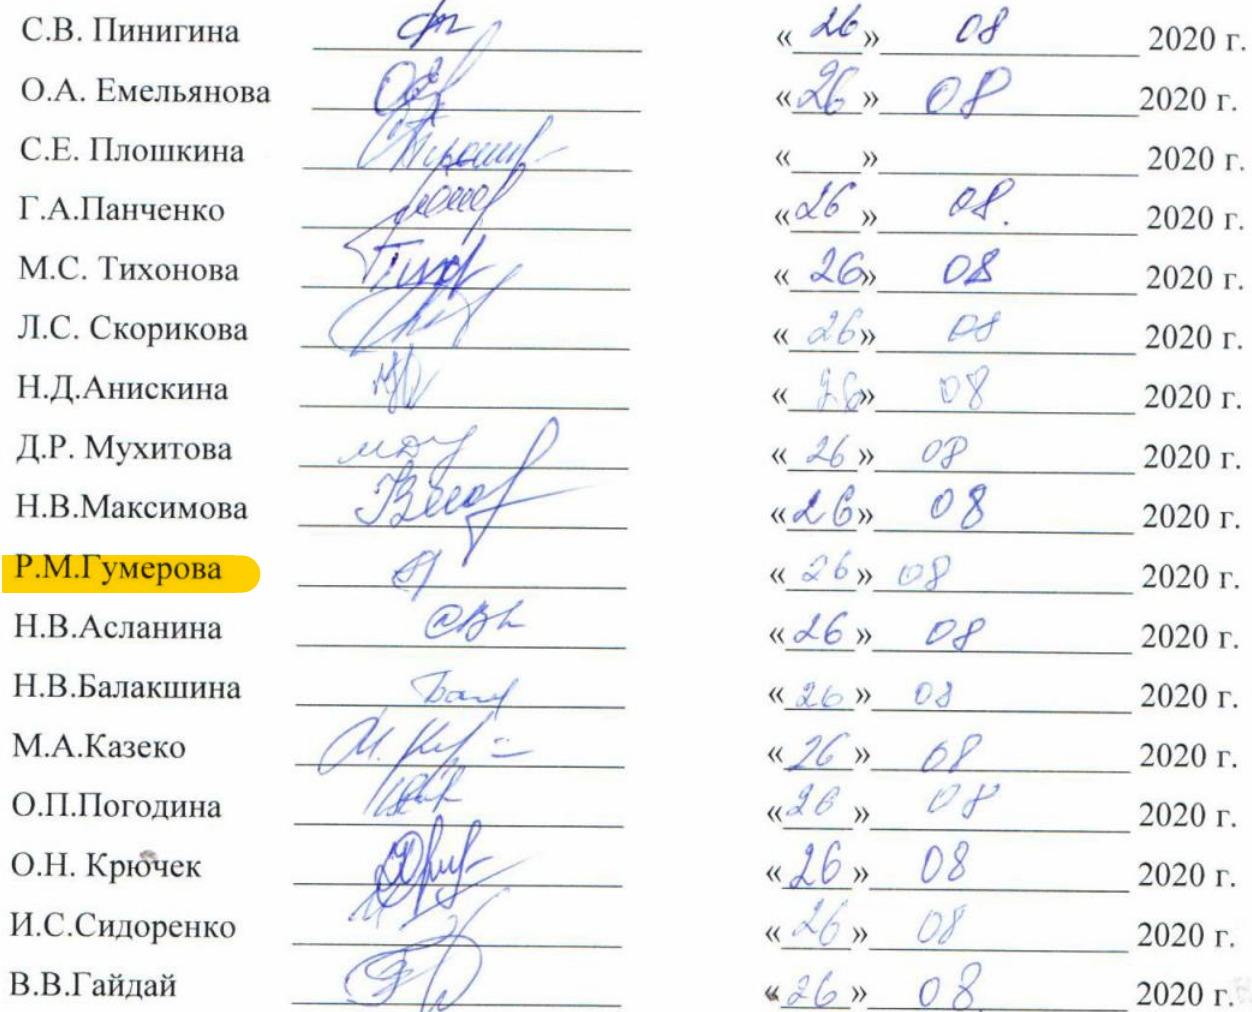 С.В. Пинигина «26» 08 2020 г.
О.А. Емельянова «26» 08 2020 г.
С.Е. Плошкина «   » 2020 г.
Г.А.Панченко «26» 08. 2020 г.
М.С. Тихонова «26» 08 2020 г.
Л.С. Скорикова «26» 08 2020 г.
Н.Д.Анискина «26» 08 2020 г.
Д.Р. Мухитова «26» 08 2020 г.
Н.В.Максимова «26» 08 2020 г.
Р.М.Гумерова «26» 08 2020 г.
Н.В.Асланина «26» 08 2020 г.
Н.В.Балакшина «26» 08 2020 г.
М.А.Казеко «26» 08 2020 г.
О.П.Погодина «26» 08 2020 г.
О.Н. Крючек «26» 08 2020 г.
И.С.Сидоренко «26» 08 2020 г.
В.В.Гайдай «26» 08. 2020 г.